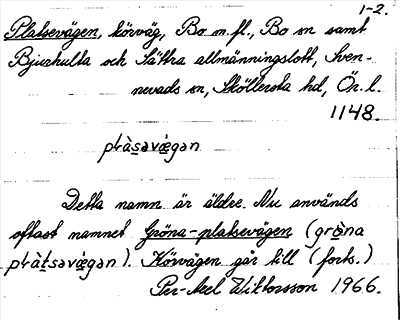 1-2.
Platsevägen, körväg, Bo m.fl., Bo sn samt
Bjurhulta och Sätra allmänningslott, Sven-
nevads sn, Sköllersta hd, Ör. l.
1148.
plàsavägan
Detta namn är äldre. Nu används
oftast namnet Gröna-platsevägen (gröna
plàtsavägan). Körvägen går till (forts.)
Per-Axel Wiktorsson 1966.